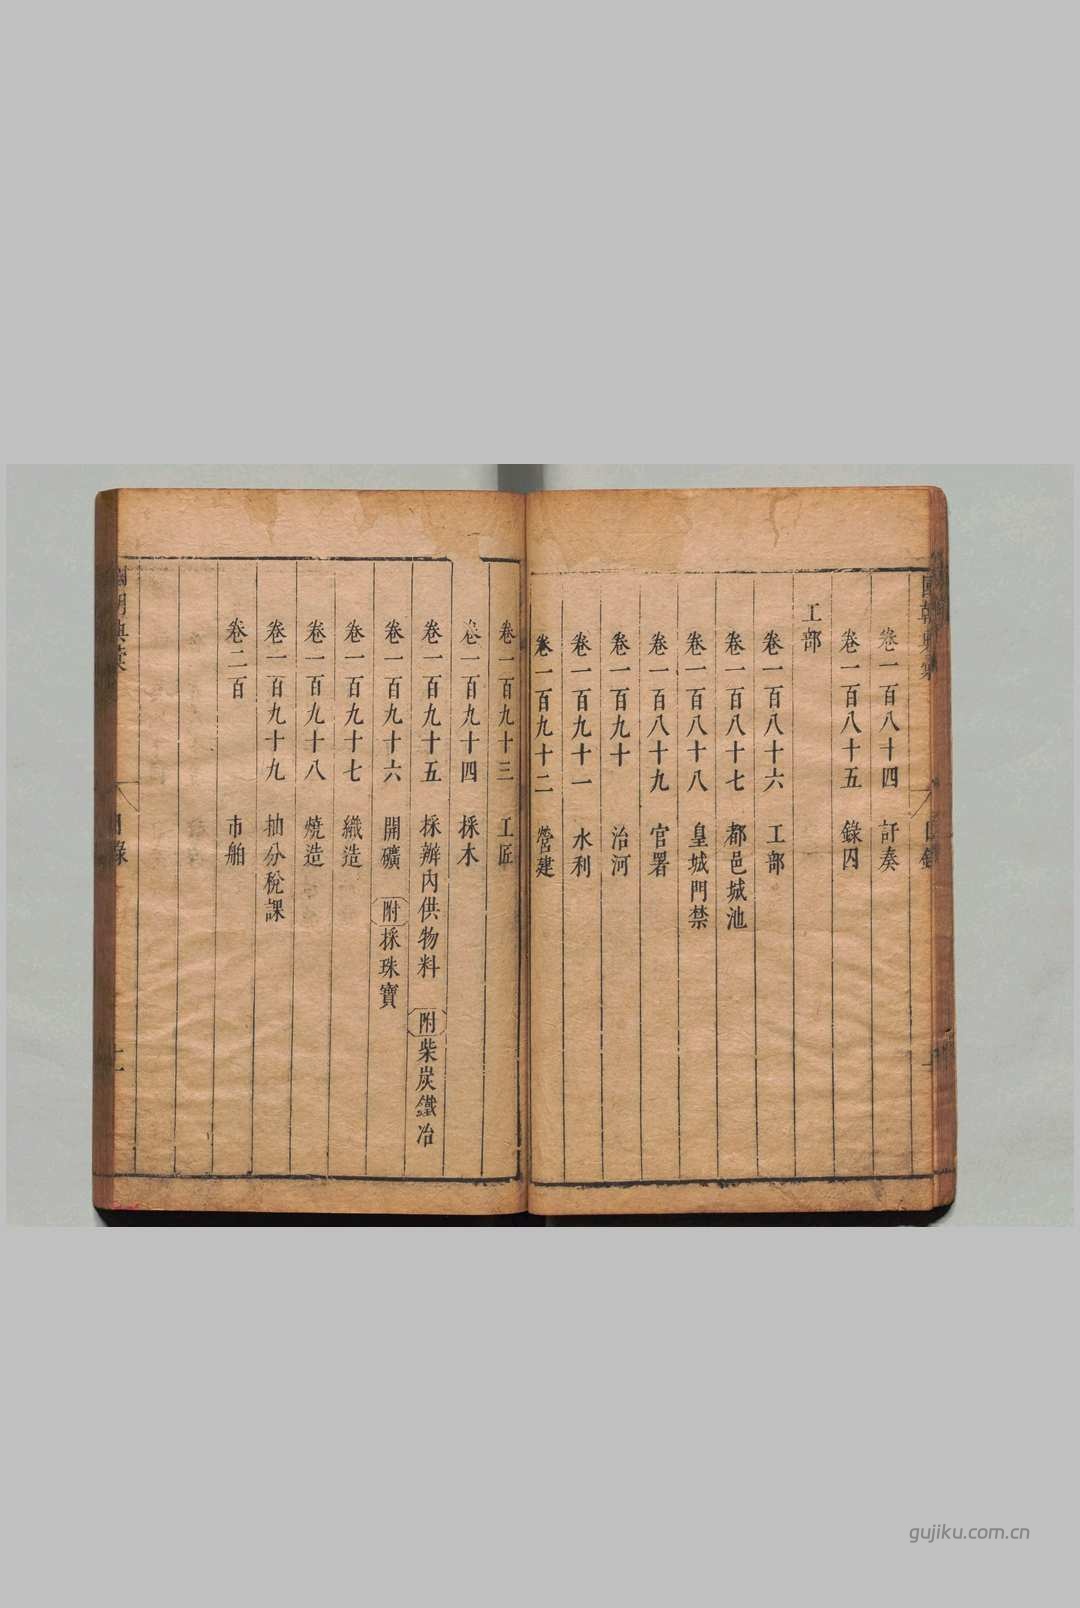 卷一百八十四　訐奏
卷一百八十五　錄囚
工部
卷一百八十六　工部
卷一百八十七　都邑城池
卷一百八十八　皇城門禁
卷一百八十九　官署
卷一百九十　治河
卷一百九十一　水利
卷一百九十二　營建
卷一百九十三　工匠
卷一百九十四　採木
卷一百九十五　採辦內供物料　附柴炭鐵冶
卷一百九十六　開礦　附採珠寶
卷一百九十七　織造
卷一百九十八　燒造
卷一百九十九　抽分稅課
卷二百　市舶
gujiku.com.cn